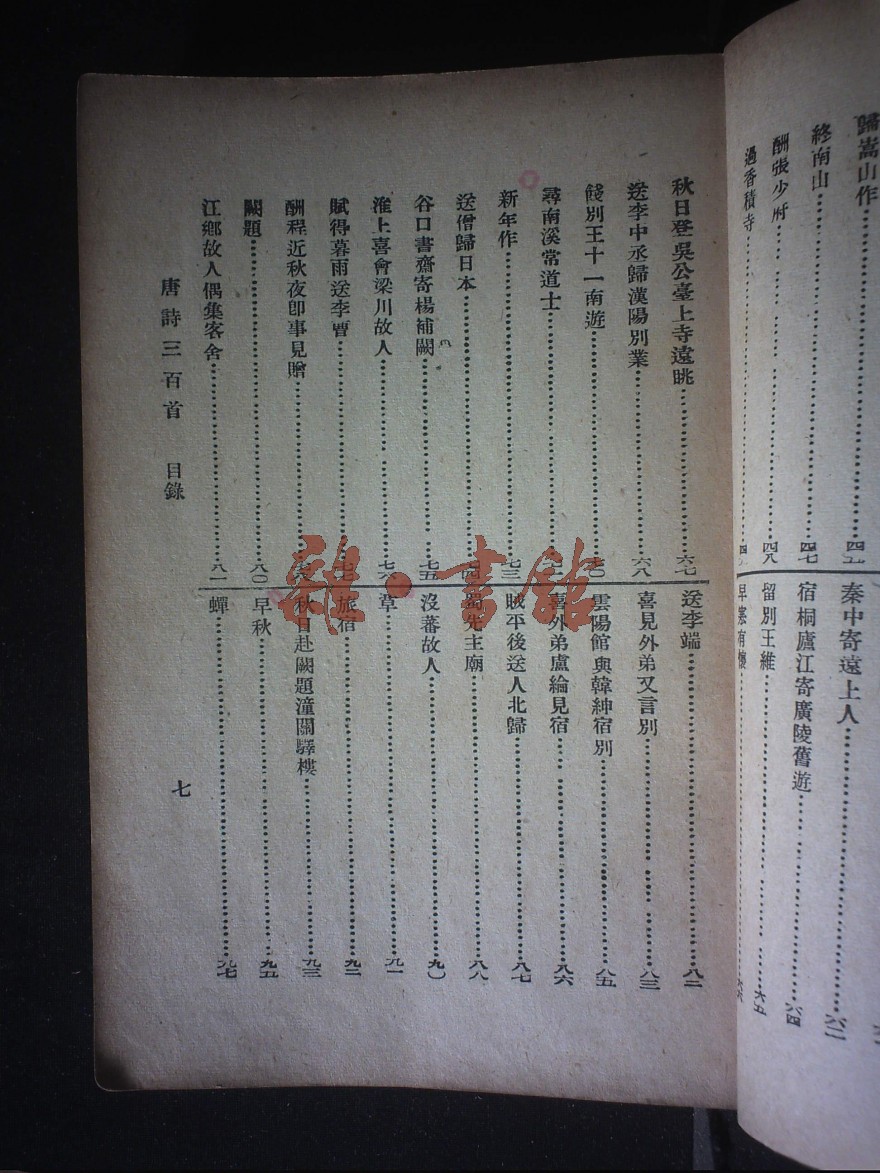 歸嵩山作……四五
終南山……四七
酬張少府……四八
過香積寺……四
秦中寄遠上人……六二
宿桐廬江寄廣陵舊遊……六四
留別王維……六五
早寒有懷……六六
秋日登吳公臺上寺遠眺……六七
送李中丞歸漢陽別業……六八
餞別王十一南遊……七〇
尋南溪常道士……七
新年作……七三
送僧歸日本……七四
谷口書齋寄楊補闕……七五
淮上喜會梁川故人……七六
賦得暮雨送李曹……七七
酬程近秋夜即事見贈……七八
闕題……八〇
江鄉故人偶集客舍……八一
送李端……八二
喜見外弟又言別……八三
雲陽館與韓紳宿別……八五
喜外弟盧綸見宿……八六
賊平後送人北歸……八七
蜀先主廟……八八
沒蕃故人……九〇
草……九一
旅宿……九二
秋日赴闕題潼關驛樓……九三
早秋……九五
蟬……九七
唐詩三百首 目錄
七
雜·書館